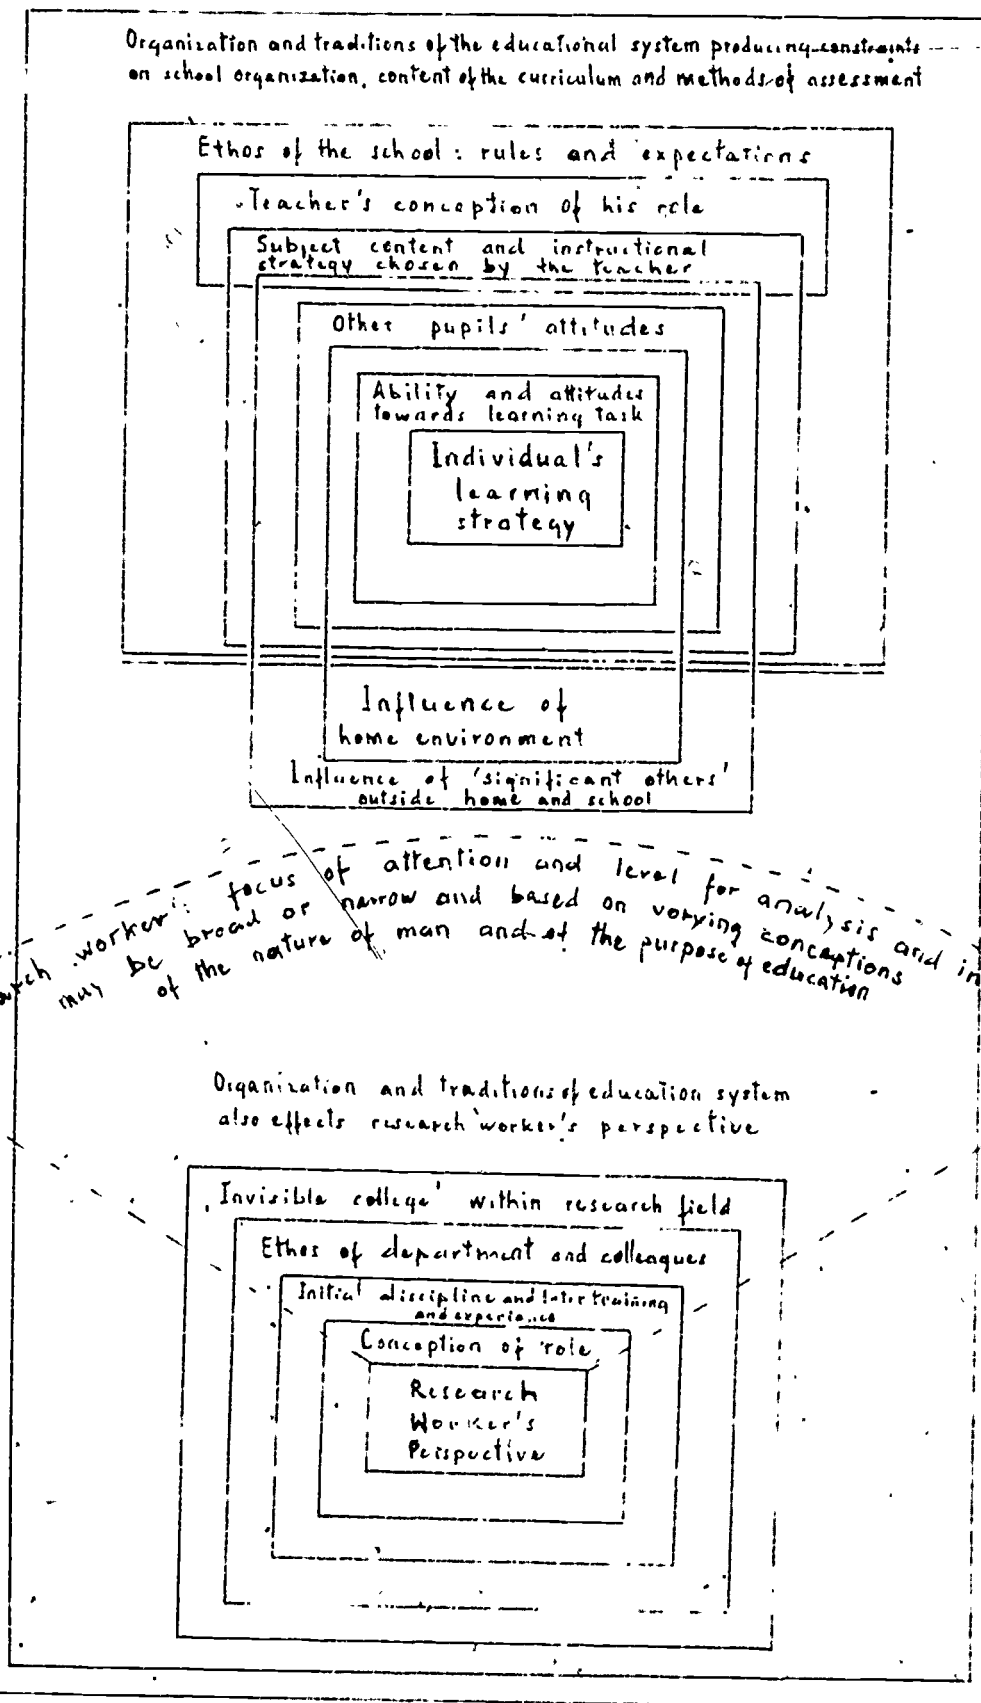 Organization and traditions of the educational system producing constraints
on school organization, content of the curriculum and methods of assessment
Ethos of the school: rules and expectations
Teacher's conception of his role
Subject content and instructional
strategy chosen by the teacher
Other pupils' attitudes
Ability and attitudes
towards learning task
Individual's
learning
strategy
Influence of
home environment
Influence of 'significant others'
outside home and school
worker's focus of attention and level for analysis and
may be broad or narrow and based on varying conceptions
of the nature of man and of the purpose of education
Organization and traditions of education system
also effects research worker's perspective
'Invisible college' within research field
Ethos of department and colleagues
Initial discipline and later training
and experience
Conception of role
Research
Worker's
Perspective